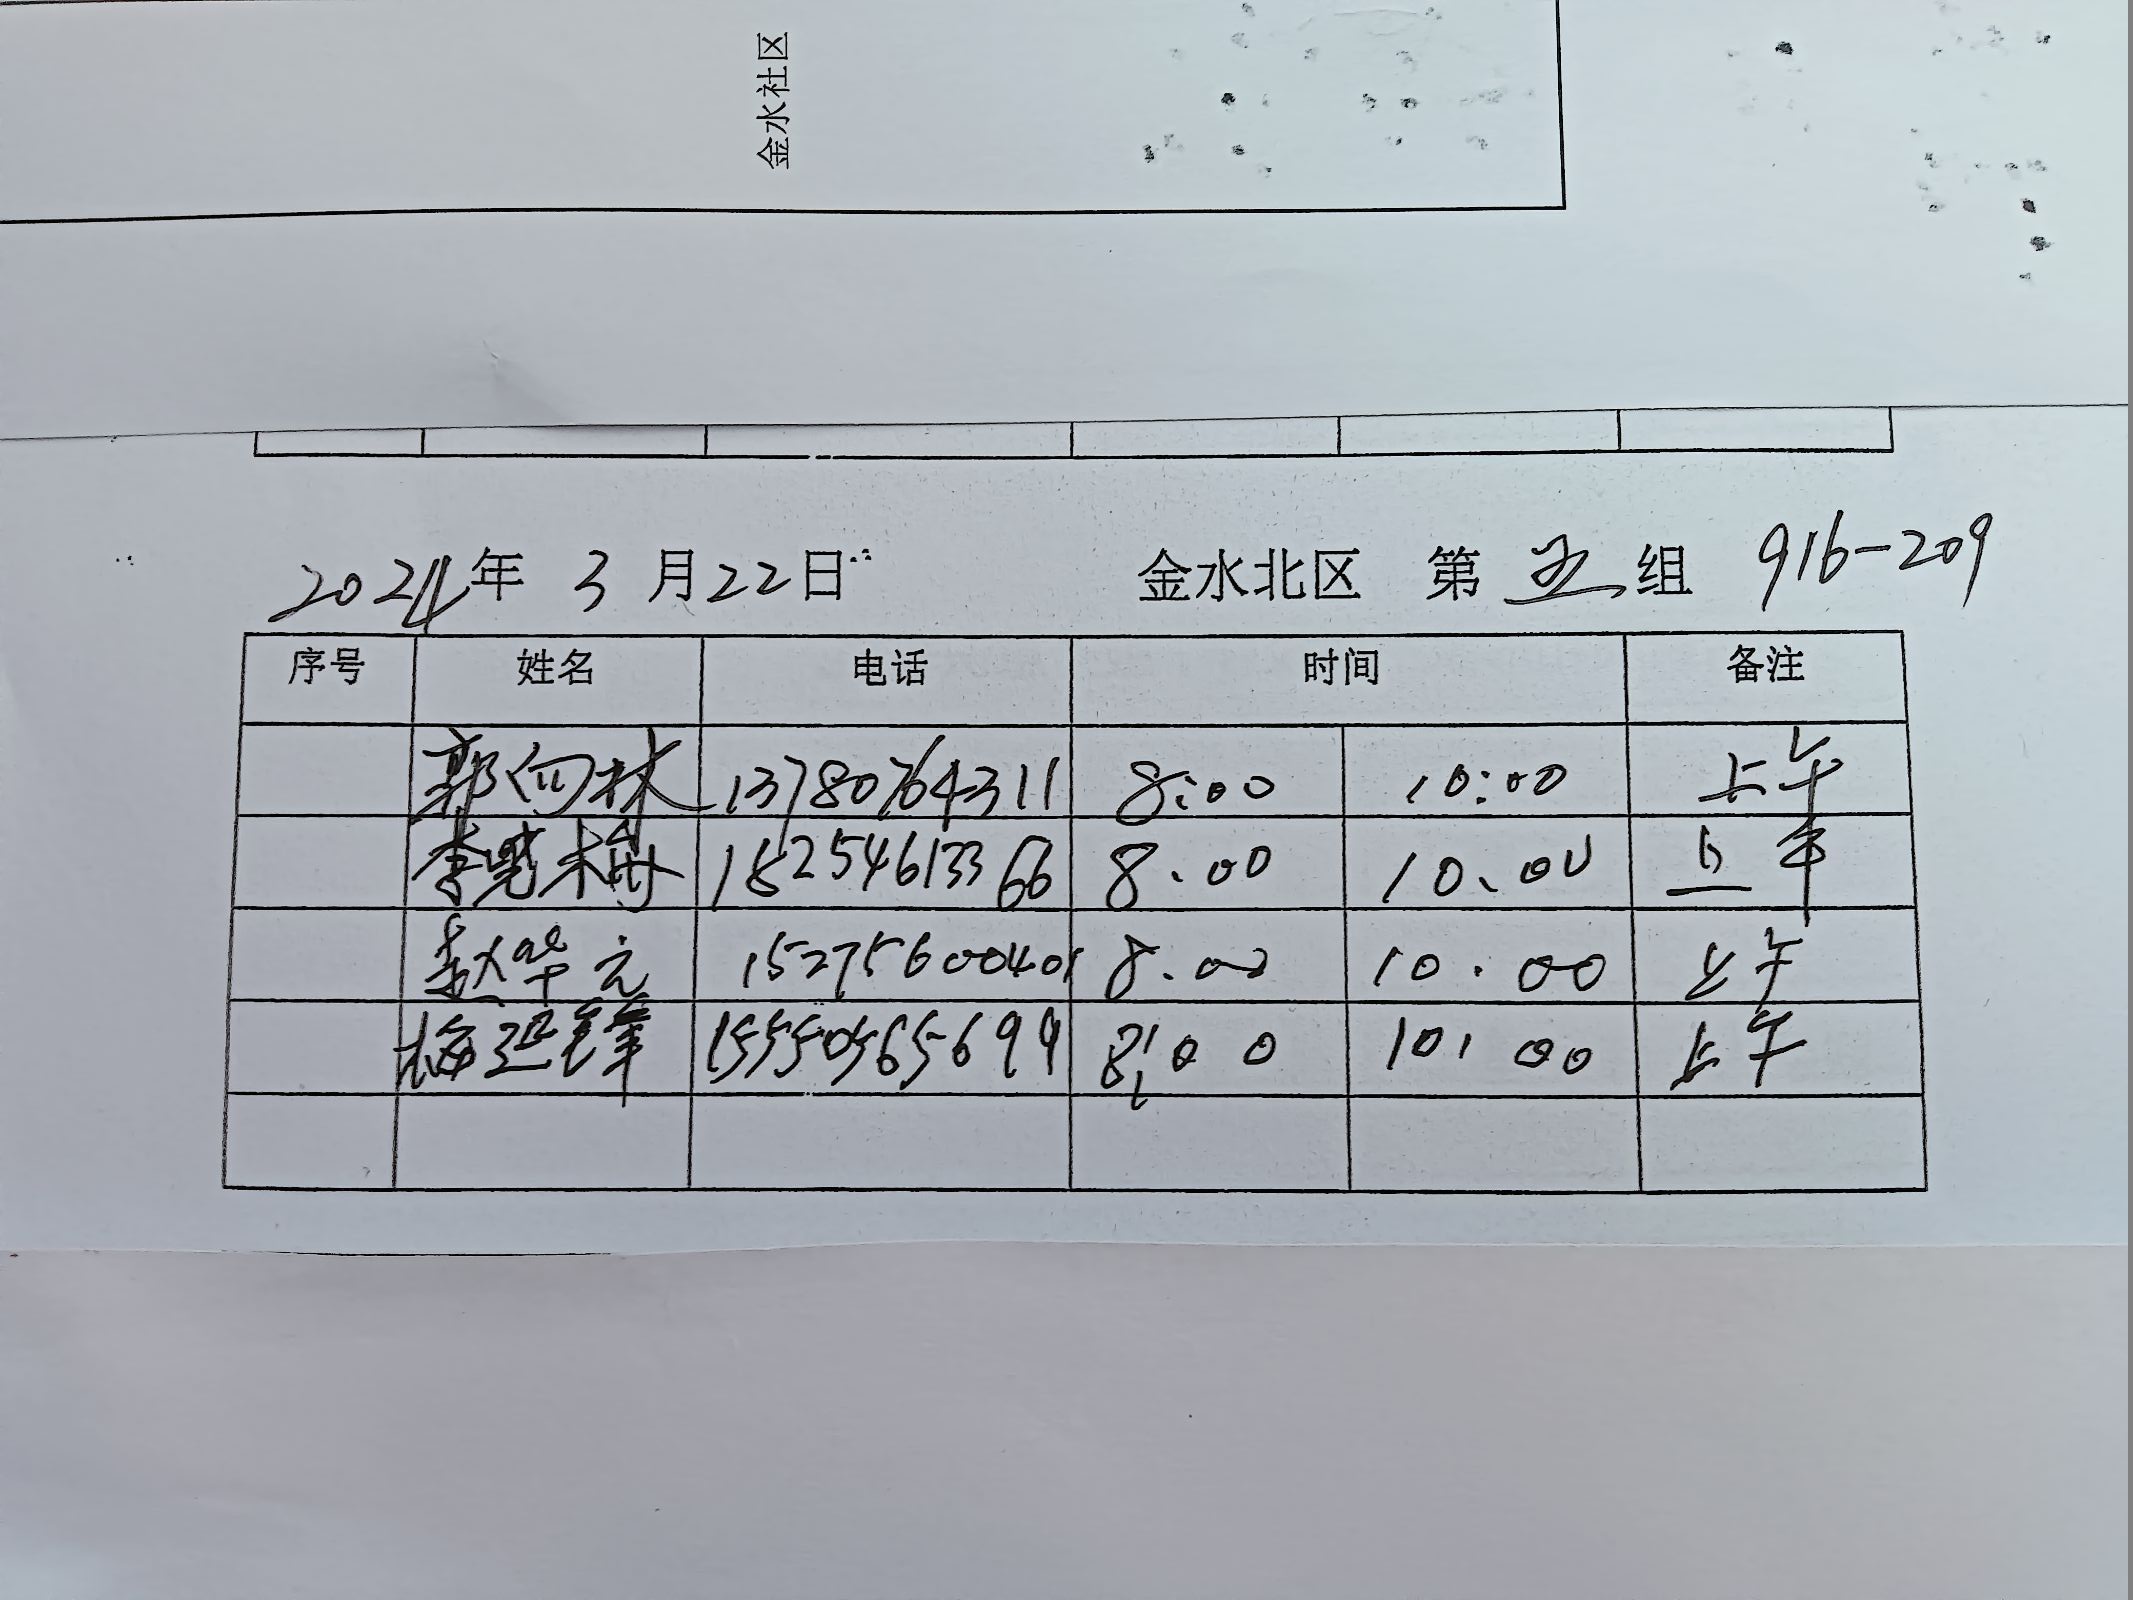 金水社区
2024年 3 月22日 金水北区 第 五 组 916-209
序号 姓名 电话 时间 备注
郭向林 13780764311 8:00 10:00 上午
李光梅 18254613366 8.00 10.00 上午
赵华元 15275600401 8.00 10.00 上午
梅延锋 15550565699 8:00 10:00 上午